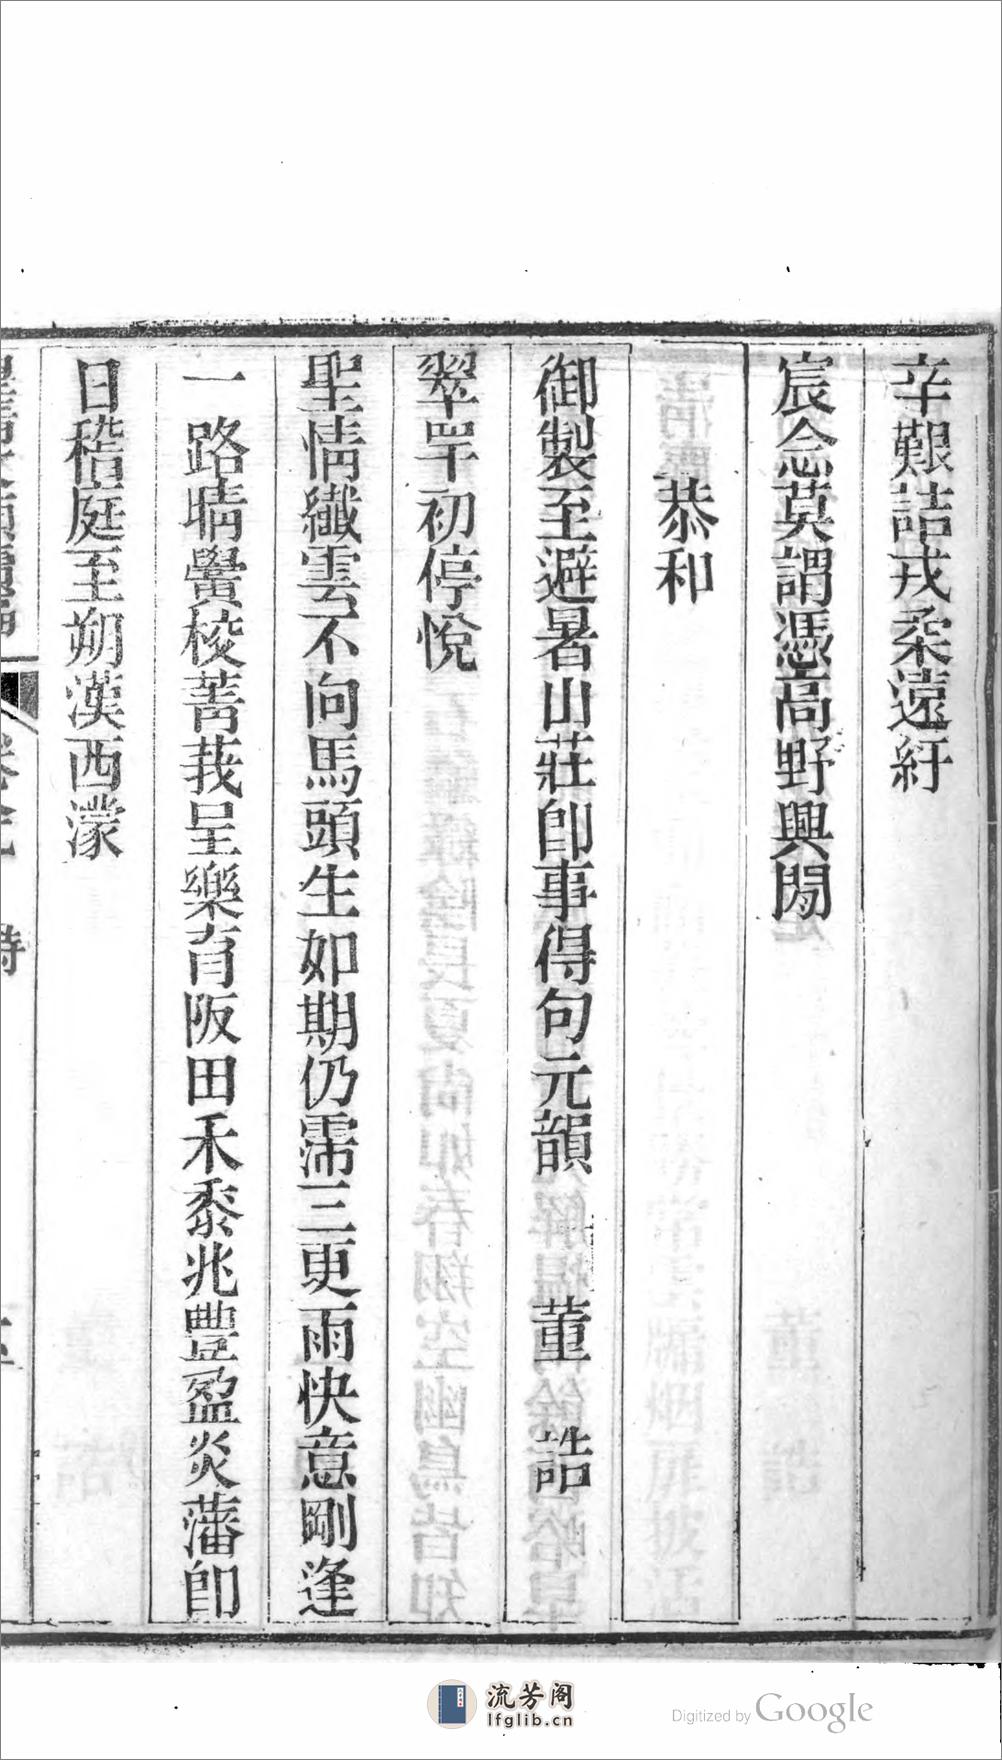 辛艱詰戎柔遠紆
宸念莫謂憑高野興閒
恭和
御製至避暑山莊卽事得句元韻 董 誥
翠罕初停悅
聖情纖雲不向馬頭生如期仍霈三更雨快意剛逢
一路晴黌校菁莪呈樂育阪田禾黍兆豐盈炎藩卽
日稽庭至朔漠西濛
詩
流芳阁
lfglib.cn
Digitized by Google